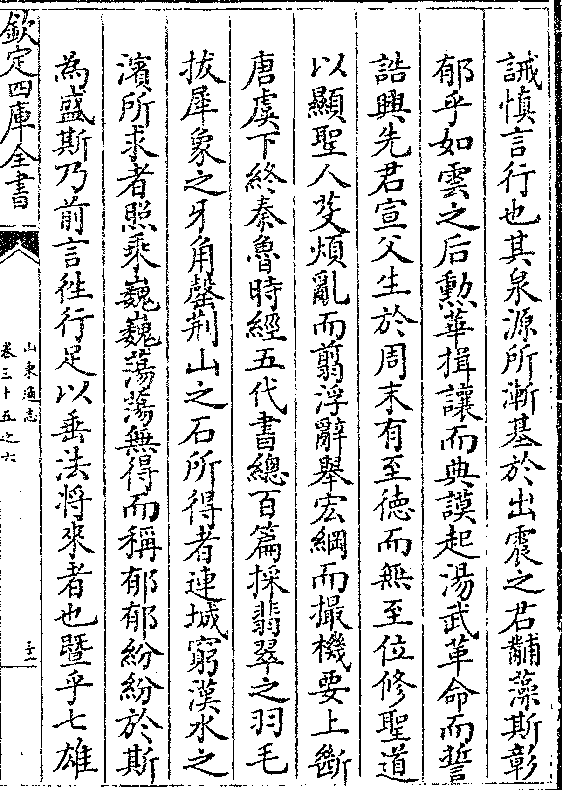 誡慎言行也其泉源所漸基於出震之君黼藻斯彰
郁乎如雲之后勲華揖讓而典謨起湯武革命而誓
誥興先君宣父生於周末有至德而無至位修聖道
以顯聖人芟煩亂而翦浮辭舉宏綱而撮機要上斷
唐虞下終秦魯時經五代書總百篇採翡翠之羽毛
拔犀象之牙角罄荆山之石所得者連城窮漢水之
濱所求者照乘巍巍蕩蕩無得而稱郁郁紛紛於斯
為盛斯乃前言徃行足以垂法將來者也暨乎七雄
欽定四庫全書
山東通志
卷三十五之六